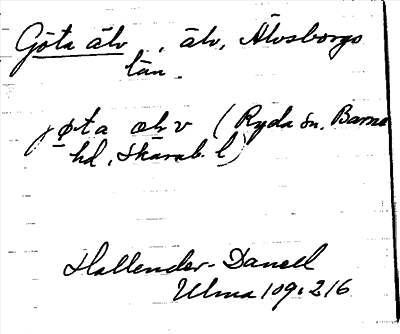 Göta älv, älv, Älvsborgs
län.
jøta ælv (Ryda sn, Barne
hd, Skarab. l)
Hallender-Danell
Ulma 109:216